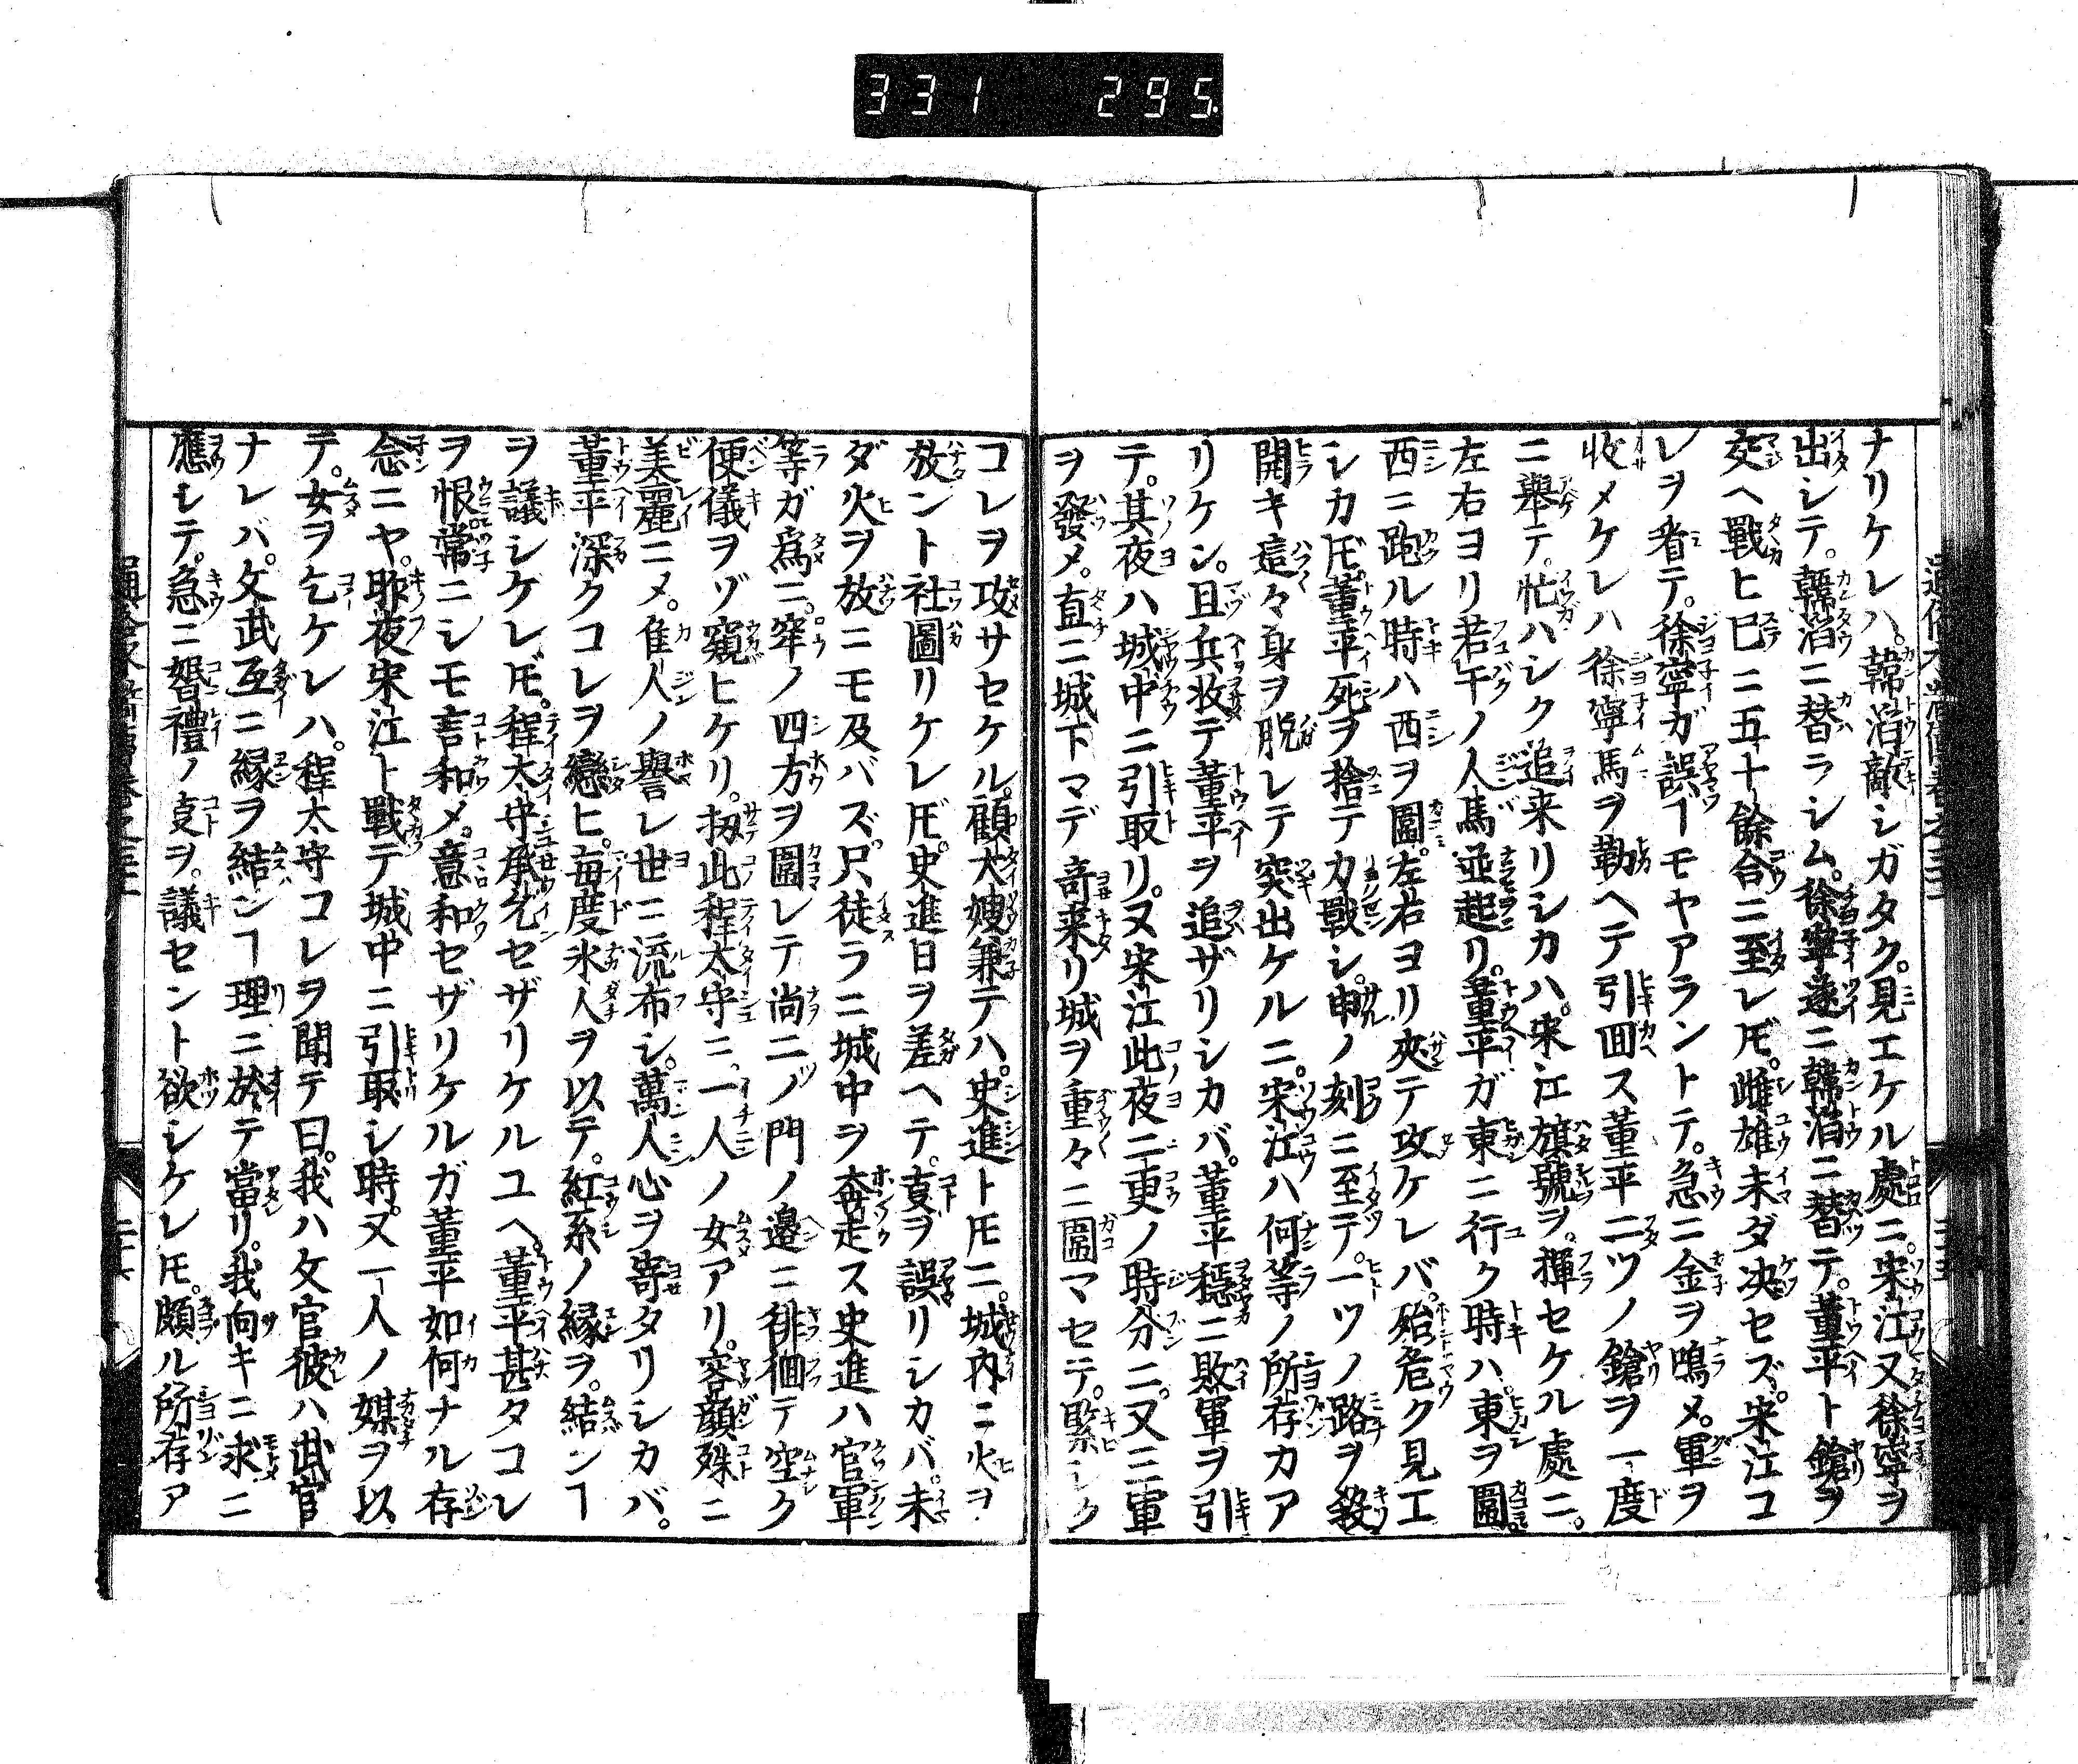 331 295
ナリケレハ。韓滔敵シガタク。見エケル處ニ。宋江又徐寧ヲ
出シテ。韓滔ニ替ラシム。徐寧遂ニ韓滔ニ替テ。董平ト鎗ヲ
交ヘ戰ヒ巳ニ五十餘合ニ至レ𪜈。雌雄未ダ决セズ。宋江コ
レヲ看テ。徐寧ガ誤ヿモヤアラントテ。急ニ金ヲ鳴メ。軍ヲ
收メケレハ徐寧馬ヲ勒ヘテ引囬ス董平二ツノ鎗ヲ一度
ニ舉テ。忙ハシク追来リシカハ。宋江旗號ヲ。揮セケル處ニ。
左右ヨリ若干ノ人馬並起リ。董平ガ東ニ行ク時ハ。東ヲ圍。
西ニ跑ル時ハ西ヲ圍。左右ヨリ夾テ攻ケレバ。殆危ク見エ
シカ𪜈。董平死ヲ捨テ力戰シ。申ノ刻ニ至テ。一ツノ路ヲ殺
開キ這々身ヲ脱レテ突出ケルニ。宋江ハ何等ノ所存カア
リケン。且兵收テ董平ヲ追ザリシカバ。董平穩ニ敗軍ヲ引
テ。其夜ハ城中ニ引取リ。又宋江此夜二更ノ時分ニ。又三軍
ヲ發メ。直ニ城下マデ竒来リ城ヲ重々ニ圍マセテ。緊シク
コレヲ攻サセケル。顧大嫂兼テハ。史進ト𪜈ニ。城内ニ火ヲ
放ント社圖リケレ𪜈。史進日ヲ差ヘテ。㕝ヲ誤リシカバ。未
ダ火ヲ放ニモ及バズ。只徒ラニ城中ヲ奔走ス史進ハ官軍
等ガ爲ニ。窂ノ四方ヲ圍レテ尚ニノ門ノ邊ニ徘徊テ空ク
便儀ヲゾ窺ヒケリ。扨此程太守ニ、一人ノ女アリ。容顔殊ニ
美麗ニメ。隹人ノ譽レ世ニ流布シ。萬人心ヲ寄タリシカバ。
董平深クコレヲ戀ヒ。毎度氷人ヲ以テ。紅系ノ縁ヲ。結ンヿ
ヲ議シケレ𪜈。程太守承允セザリケルユヘ。董平甚タコレ
ヲ恨常ニシモ言和メ。意和セザリケルガ董平如何ナル存
念ニヤ。昨夜宋江ト戰テ城中ニ引取シ時。又一人ノ媒ヲ以
テ。女ヲ乞ケレハ。程太守コレヲ聞テ曰。我ハ文官彼ハ武官
ナレバ。文武互ニ縁ヲ結ンヿ理ニ於テ當リ。我向キニ求ニ
應シテ。急ニ婚禮ノ㕝ヲ。議セント欲シケレ𪜈。頗ル所存ア